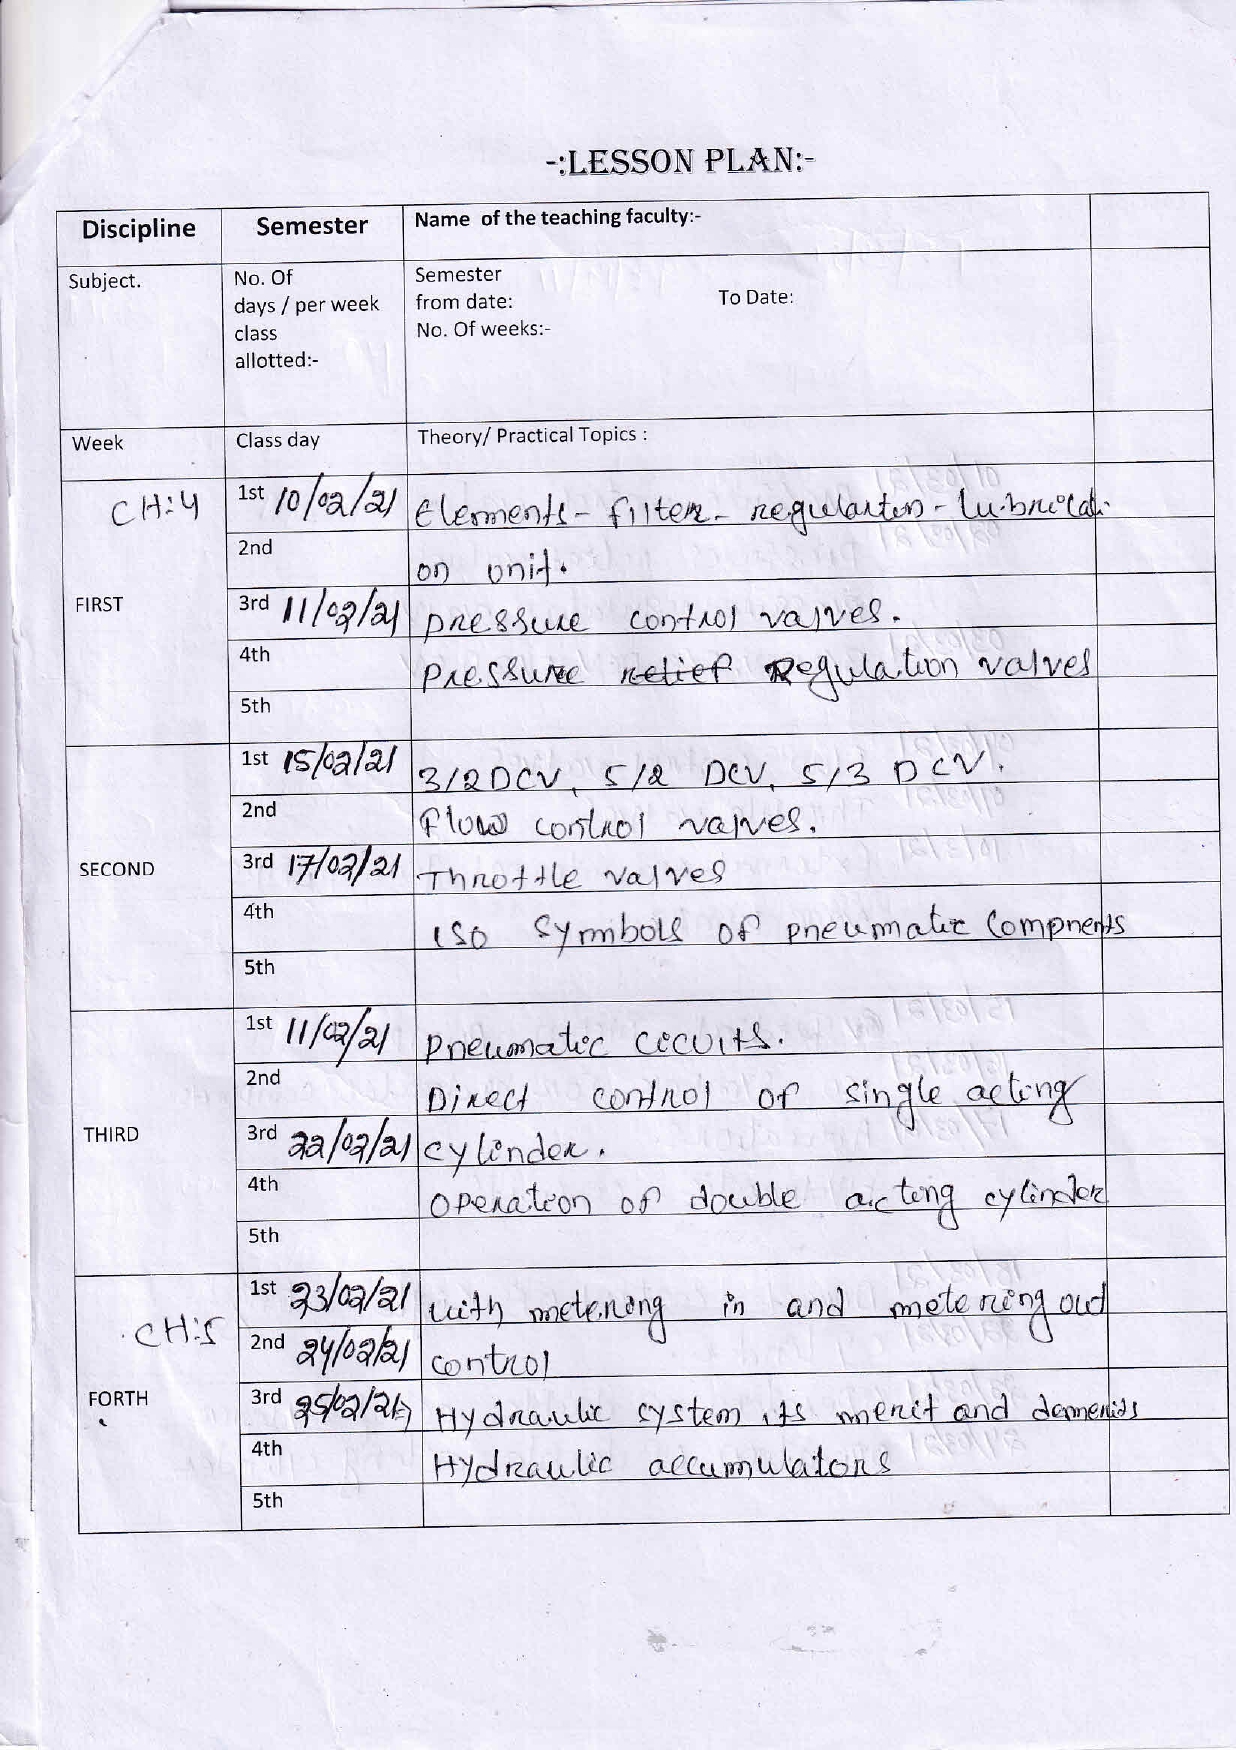 -:LESSON PLAN:-
Discipline Semester Name of the teaching faculty:-
Subject. No. Of days / per week class allotted:- Semester from date: To Date: No. Of weeks:-
Week Class day Theory/ Practical Topics :
CH:4
FIRST
1st 10/02/21 Elements - filter - regularton - lubricati
2nd on unit.
3rd 11/02/21 pressure control valves.
4th Pressure relief Regulation valves
5th
SECOND
1st 15/02/21 3/2 DCV, 5/2 DCV, 5/3 DCV.
2nd Flow control valves.
3rd 17/02/21 Throttle valves
4th ISO Symbols of pneumatic Compnents
5th
THIRD
1st 11/02/21 Pneumatic cecuits.
2nd Direct control of single acting
3rd 22/02/21 cylinder.
4th Operation of double acting cylinder
5th
CH:5
FORTH
1st 23/02/21 with metering in and metering out
2nd 24/02/21 control
3rd 25/02/21 Hydraulic system its merit and demerits
4th Hydraulic accumulators
5th